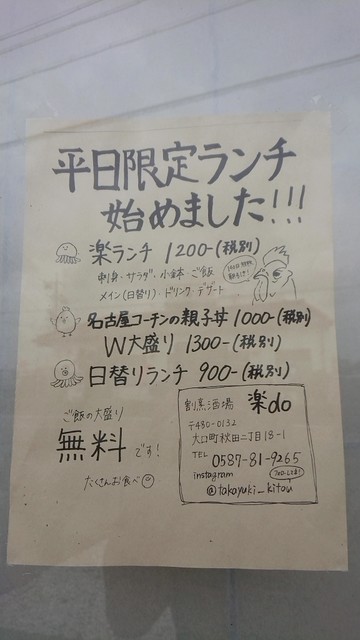 平日限定ランチ
始めました!!!
楽ランチ 1200-(税別)
刺身・サラダ・小鉢 ご飯
メイン(日替り)・ドリンク・デザート
名古屋コーチンの親子丼 1000-(税別)
W大盛り 1300-(税別)
日替りランチ 900-(税別)
ご飯の大盛り
無料です!
たくさんお食べ
割烹酒場 楽do
〒480-0132
大口町秋田二丁目18-1
TEL 0587-81-9265
instagram
フォローしてネ!
@takayuki_kitou